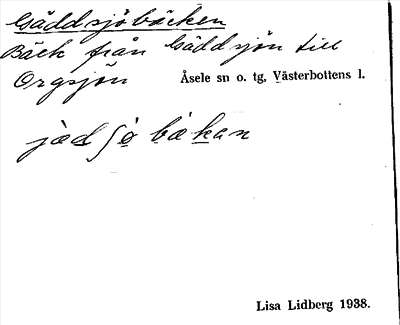 Gäddsjöbäcken
Bäck från Gäddsjön till
Orgsjön
Åsele sn o. tg, Västerbottens l.
jæd ʃö bäkan
Lisa Lidberg 1938.